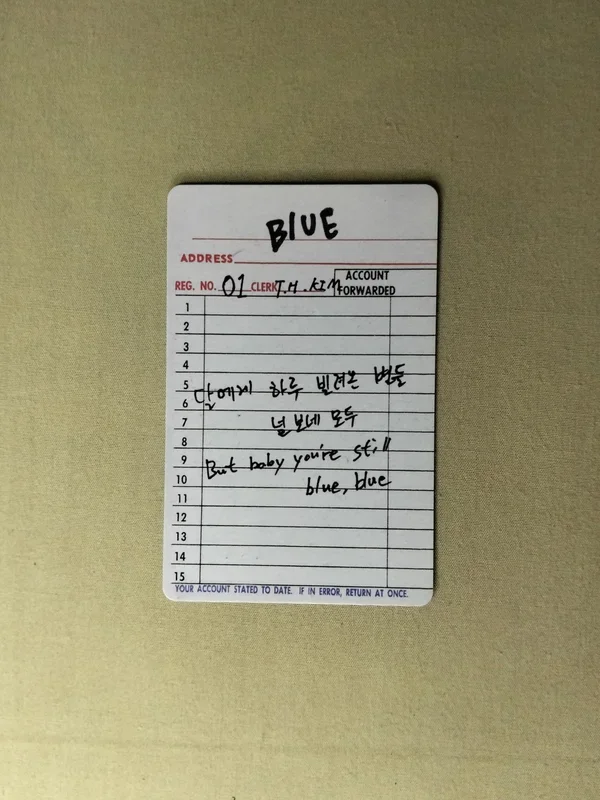 BlUE
ADDRESS
REG. NO. 01 CLERK T.H.KIM ACCOUNT FORWARDED
1
2
3
4
5
달에게 하루 빌려온 별들
6
널 보네 모두
7
8
But baby you're still
9
blue, blue
10
11
12
13
14
15
YOUR ACCOUNT STATED TO DATE. IF IN ERROR, RETURN AT ONCE.